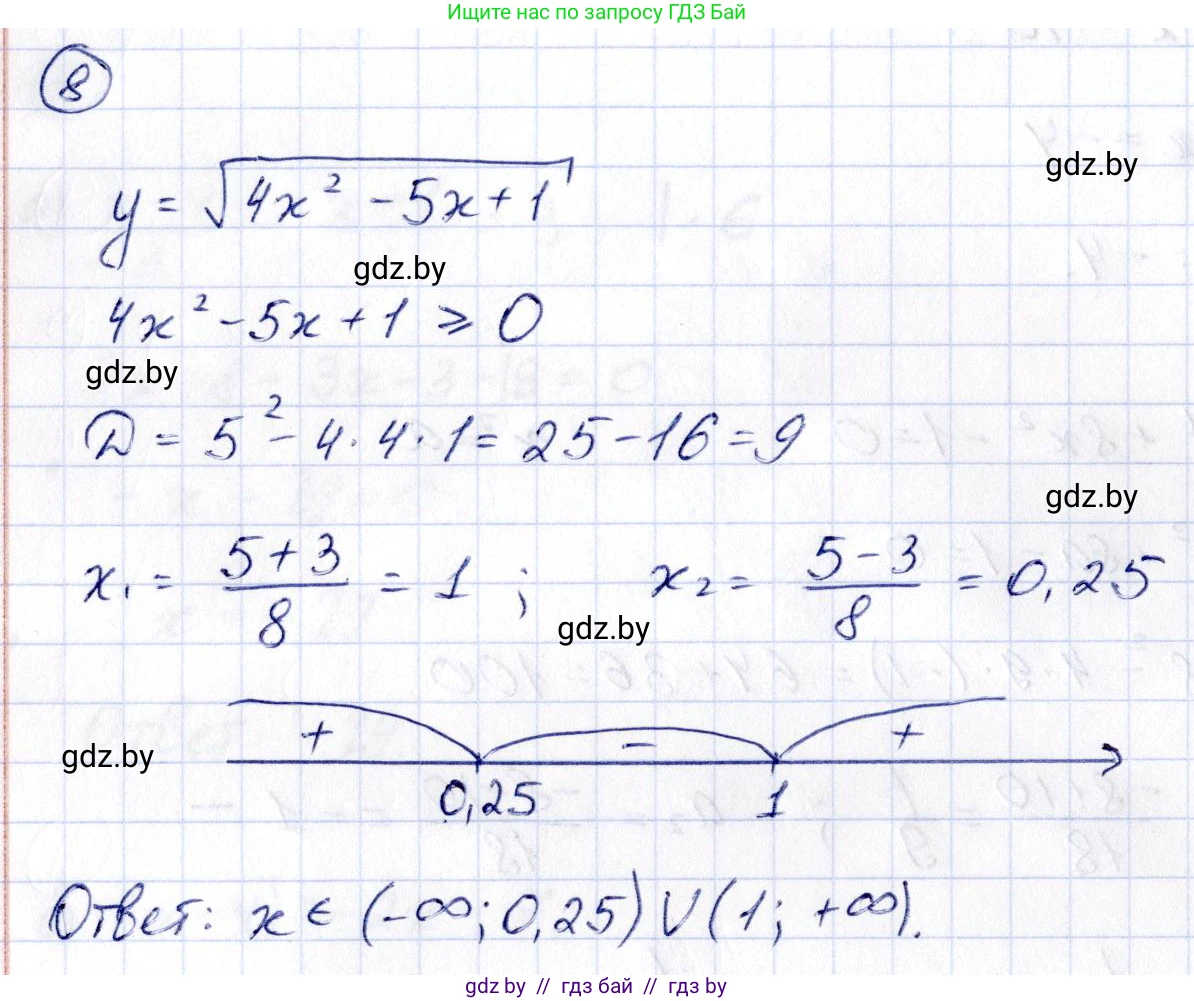 Ищите нас по запросу ГДЗ Бай
8
y = √(4x² - 5x + 1)
gdz.by
gdz.by
4x² - 5x + 1 ⩾ 0
gdz.by
D = 5² - 4 · 4 · 1 = 25 - 16 = 9
gdz.by
x₁ = (5 + 3)/8 = 1 ; x₂ = (5 - 3)/8 = 0,25
gdz.by
+ - +
gdz.by
0,25 1
Ответ: x ∈ (-∞; 0,25) ∪ (1; +∞).
gdz.by // гдз бай // гдз by